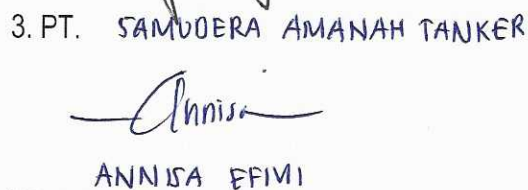 3. PT. SAMUDERA AMANAH TANKER
Annisa
ANNISA EFIVI